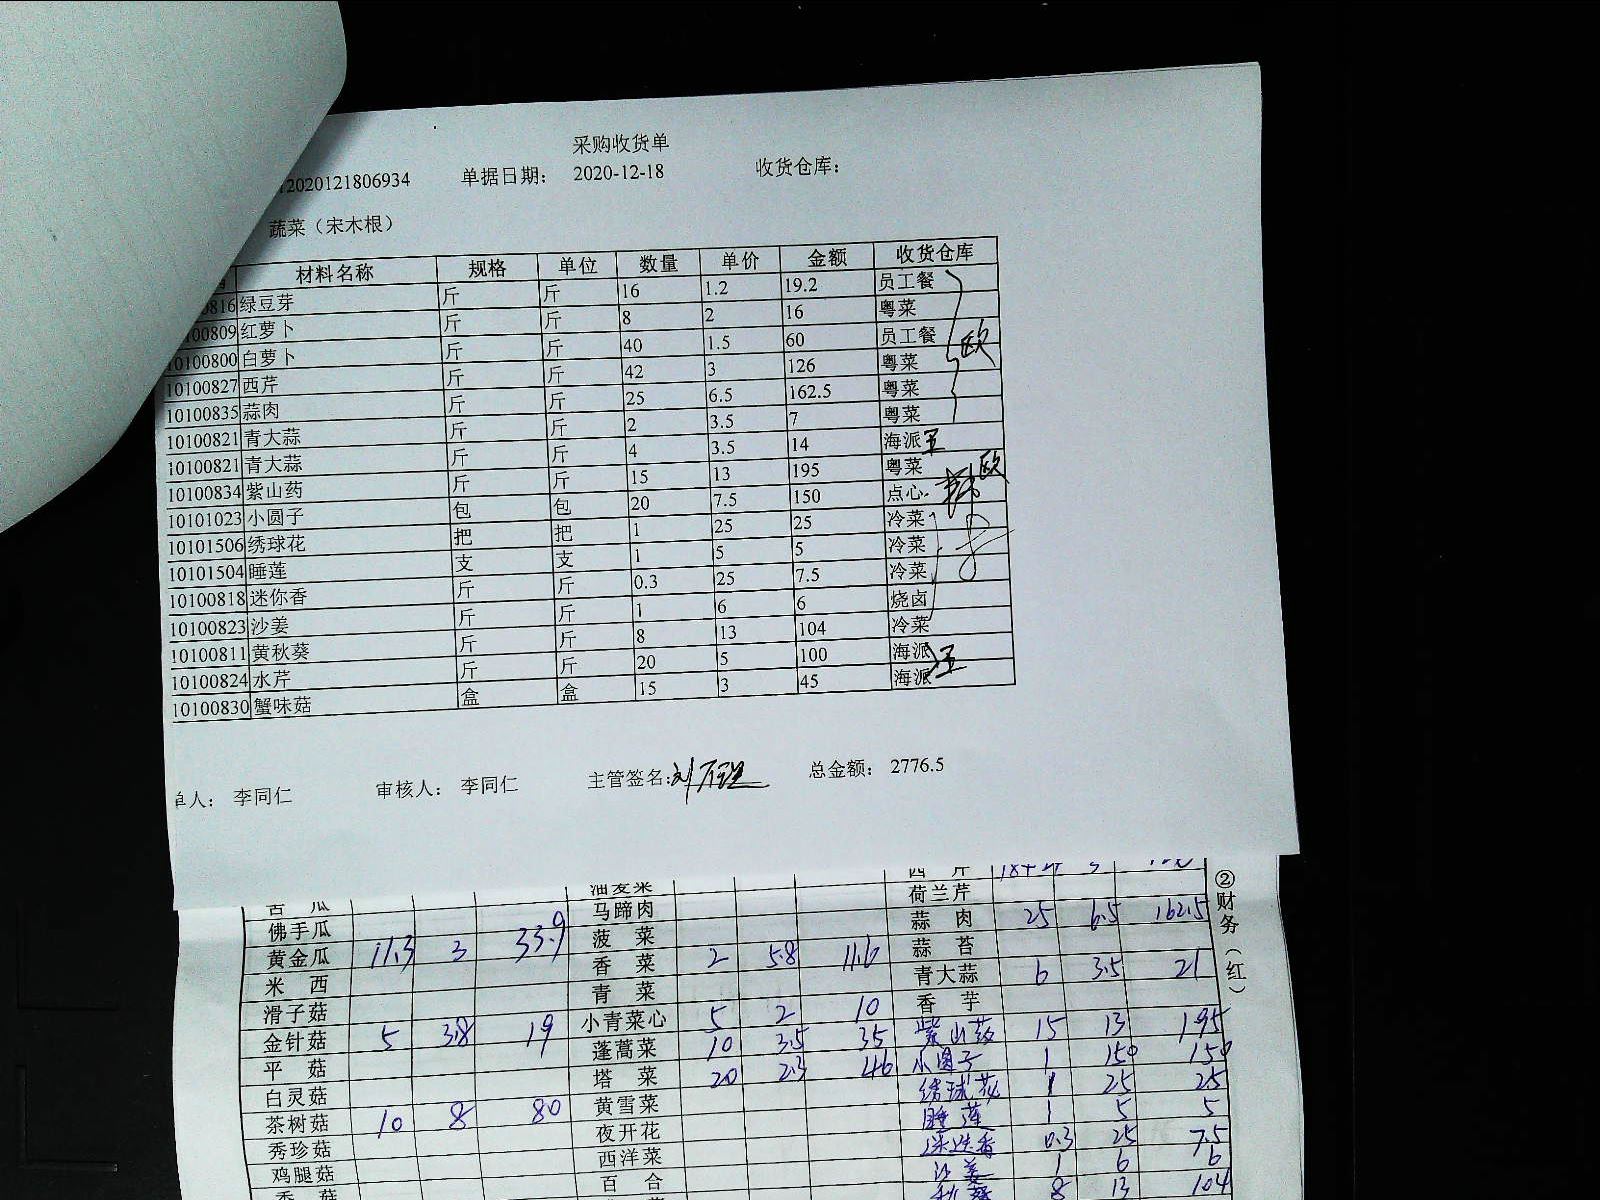 采购收货单
12020121806934 单据日期： 2020-12-18 收货仓库：
蔬菜（宋木根）
材料名称 规格 单位 数量 单价 金额 收货仓库
0816 绿豆芽 斤 斤 16 1.2 19.2 员工餐
100809 红萝卜 斤 斤 8 2 16 粤菜
10100800 白萝卜 斤 斤 40 1.5 60 员工餐 欧
10100827 西芹 斤 斤 42 3 126 粤菜
10100835 蒜肉 斤 斤 25 6.5 162.5 粤菜
10100821 青大蒜 斤 斤 2 3.5 7 粤菜
10100821 青大蒜 斤 斤 4 3.5 14 海派 王
10100834 紫山药 斤 斤 15 13 195 粤菜 欧
10101023 小圆子 包 包 20 7.5 150 点心
10101506 绣球花 把 把 1 25 25 冷菜
10101504 睡莲 支 支 1 5 5 冷菜
10100818 迷你香 斤 斤 0.3 25 7.5 冷菜
10100823 沙姜 斤 斤 1 6 6 烧卤
10100811 黄秋葵 斤 斤 8 13 104 冷菜
10100824 水芹 斤 斤 20 5 100 海派 王
10100830 蟹味菇 盒 盒 15 3 45 海派
单人： 李同仁 审核人： 李同仁 主管签名： 总金额： 2776.5
苦 瓜 油麦菜 西 芹 18+24 3
佛手瓜 马蹄肉 荷兰芹
黄金瓜 11.3 3 33.9 菠 菜 蒜 肉 25 6.5 162.5
米 西 香 菜 2 5.8 11.6 蒜 苔
滑子菇 青 菜 青大蒜 6 3.5 21
金针菇 5 3.8 19 小青菜心 5 2 10 香 芋
平 菇 蓬蒿菜 10 3.5 35 紫山药 15 13 195
白灵菇 塔 菜 20 2.3 46 小圆子 1 150 150
茶树菇 10 8 80 黄雪菜 绣球花 1 25 25
秀珍菇 夜开花 睡莲 1 5 5
鸡腿菇 西洋菜 迷迭香 0.3 25 7.5
香 菇 百 合 沙姜 1 6 6
秋葵 8 13 104
②财务（红）